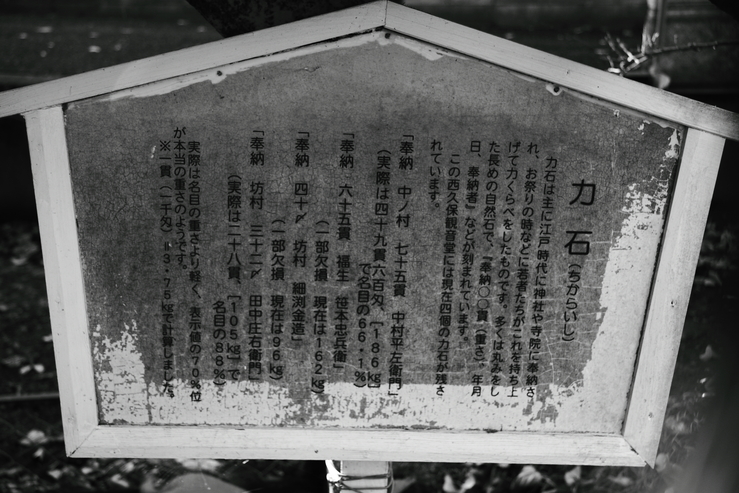 力石(ちからいし)
力石は主に江戸時代に神社や寺院に奉納さ
れ、お祭りの時などに若者たちがこれを持ち上
げて力くらべをしたものです。多くは丸みをし
た長めの自然石で、『奉納〇〇貫(重さ)、年月
日、奉納者』などが刻まれています。
この西久保観音堂には現在四個の力石が残さ
れています。
「奉納 中ノ村 七十五貫 中村平左衛門」
(実際は四十九貫六百匁、[186kg]
で名目の66.1%)
「奉納 六十五貫 福生 笹本忠兵衛」
(一部欠損 現在は162kg)
「奉納 四十〆 坊村 細渕金造」
(一部欠損 現在は96kg)
「奉納 坊村 三十二〆 田中庄右衛門」
(実際は二十八貫、[105kg]で
名目の88%)
実際は名目の重さより軽く、表示値の70%位
が本当の重さのようです。
※一貫(一千匁)=3.75kgで計算しました。